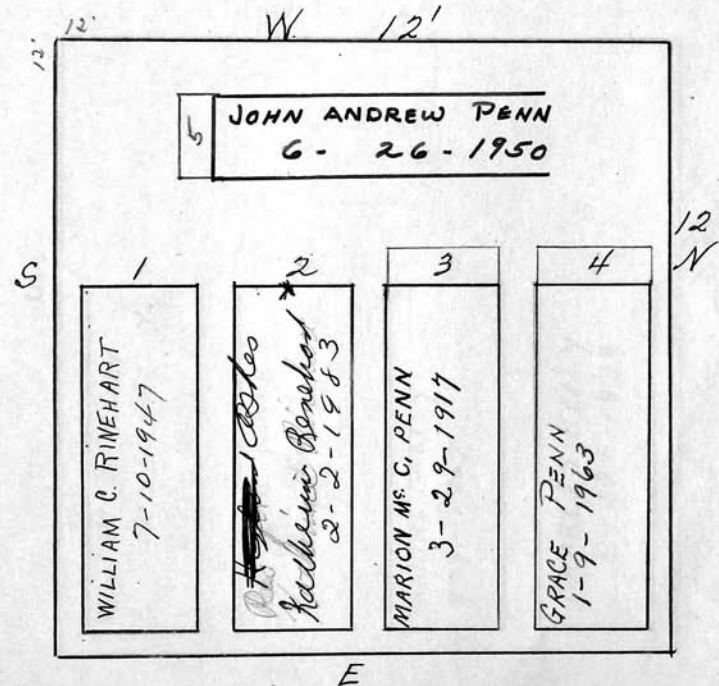 12'
12'
W. 12'
5
JOHN ANDREW PENN
6 - 26 - 1950
12
S
N
1
2
3
4
*
WILLIAM C. RINEHART
7-10-1947
Ashes
Katherine Rinehart
2-2-1983
MARION Mc. C. PENN
3-29-1917
GRACE PENN
1-9-1963
E